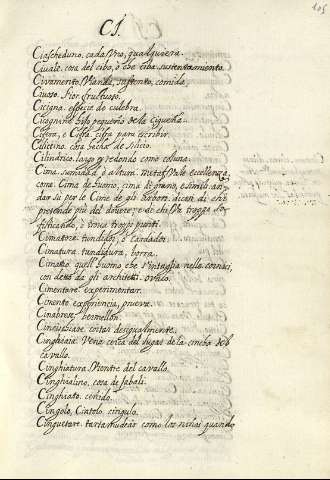 105
CI.
Ciascheduno, cada Uno, qualquiera.
Ciuale. cosa del cibo, ò che ciba, sustentamiento.
Civamento. Vianda, sustento, comida,
Ciuoso. fior, fructuoso.
Cicigna. especie de culebra.
Cicognino hijo pequeño de la Cigueña.
Cifera, e Cifra. cifra para escribir.
Cilicino. cosa hecha de Silicio.
Cilindrico. largo y redondo como coluna.
Cima. sumidad, ò altura. metaf. Vale eccellenza,
come. Cima de huomo, cima di grano, e simili. an-
dar su per le Cime de gli arbori. dicesi di chi
pretende più del dovere; e di chi sta troppo so-
fisticando, ò troua troppo puntti.
Cimatore. tundidor, ò cardador.
Cimatura. tundidura, borra.
Cimetto. quell huomo, che s'intaglia nelle cornici,
con detto da gli architetti. ovolo.
Cimentare. experimentar.
Cimento experiencia, prueva.
Cinabrese. bermellon.
Cincischiare. cortar desigualmente.
Cinghiaia. Vena cerca del lugar de la cincha del
cavallo.
Cinghiatura. Vientre del cavallo.
Cinghialino. cosa de Jabali.
Cinghiato. ceñido.
Cingolo, Cintolo, cingulo.
Cinguettare. tartamudear como los niños quando